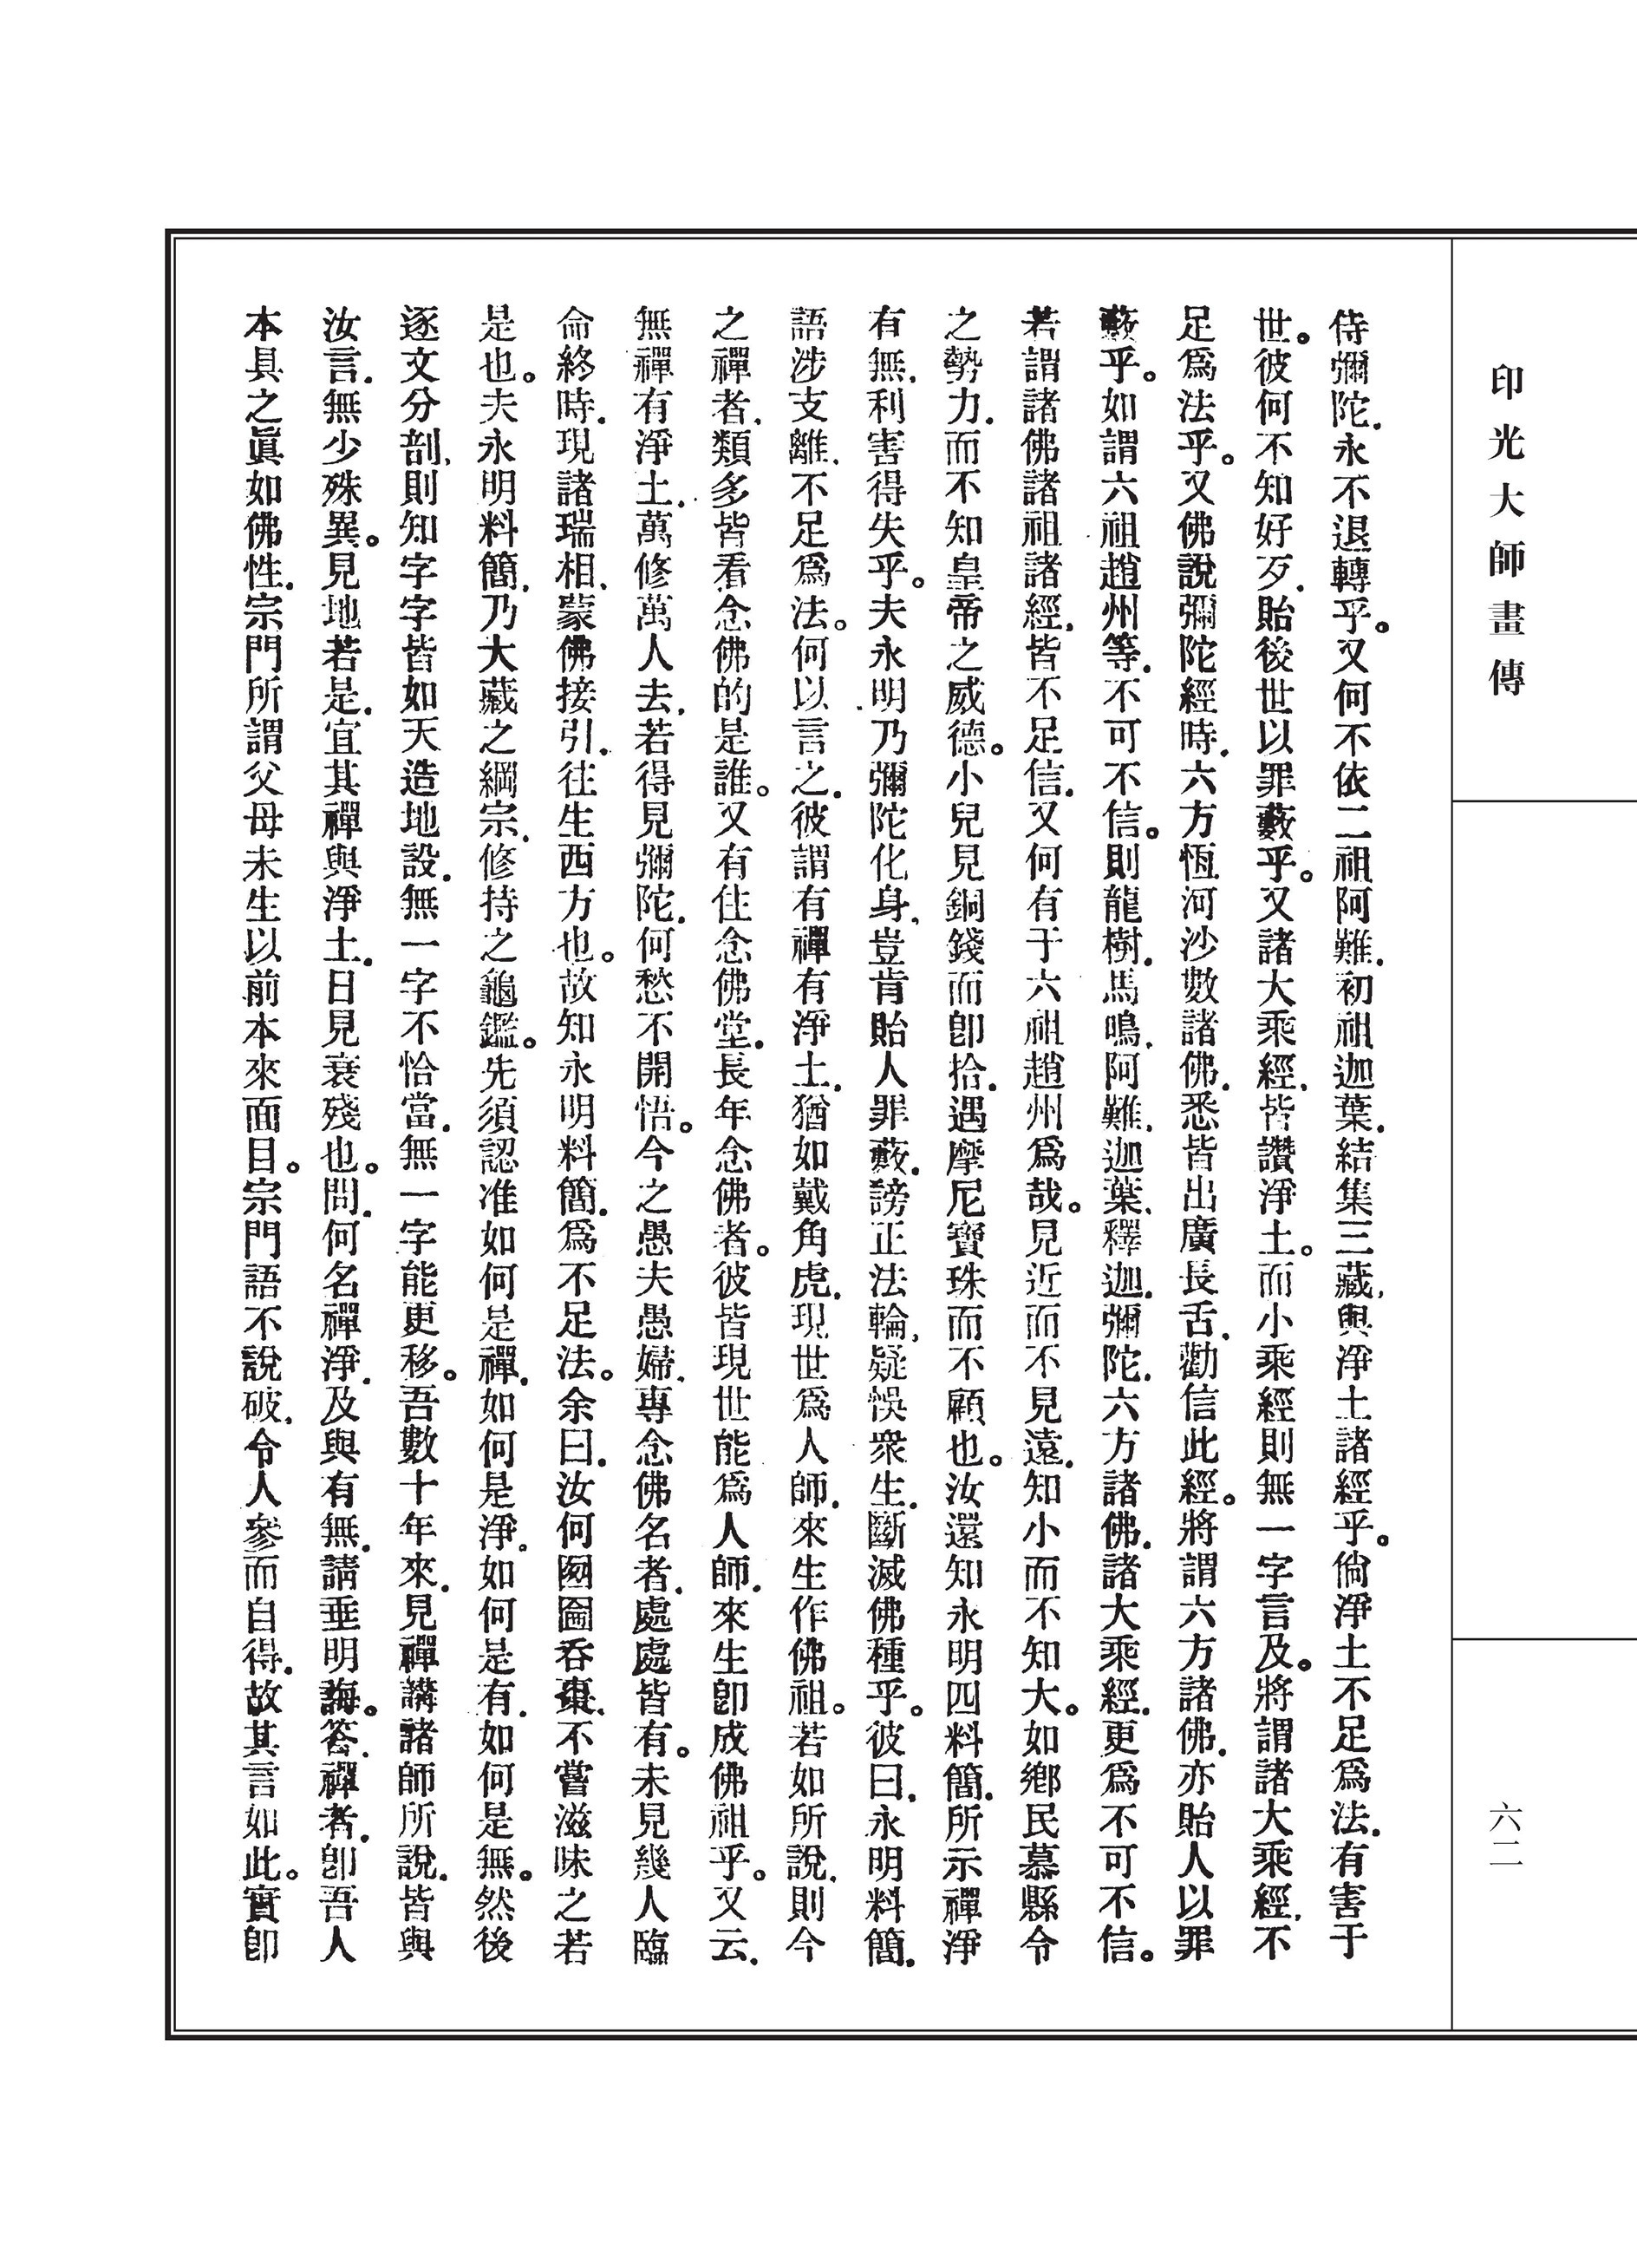 印光大師畫傳
六二
侍彌陀．永不退轉乎。又何不依二祖阿難．初祖迦葉．結集三藏，與淨土諸經乎。倘淨土不足爲法．有害于
世。彼何不知好歹．貽後世以罪藪乎。又諸大乘經．皆讚淨土。而小乘經則無一字言及。將謂諸大乘經，不
足爲法乎。又佛說彌陀經時．六方恆河沙數諸佛．悉皆出廣長舌．勸信此經。將謂六方諸佛．亦貽人以罪
藪乎。如謂六祖趙州等．不可不信。則龍樹．馬鳴．阿難．迦葉．釋迦．彌陀．六方諸佛．諸大乘經．更爲不可不信。
若謂諸佛諸祖諸經．皆不足信．又何有于六祖趙州爲哉。見近而不見遠．知小而不知大。如鄉民慕縣令
之勢力．而不知皇帝之威德。小兒見銅錢而卽拾．遇摩尼寶珠而不顧也。汝還知永明四料簡．所示禪淨
有無．利害得失乎。夫永明乃彌陀化身，豈肯貽人罪藪．謗正法輪，疑悞衆生．斷滅佛種乎。彼曰．永明料簡．
語涉支離．不足爲法。何以言之．彼謂有禪有淨土．猶如戴角虎．現世爲人師．來生作佛祖。若如所說．則今
之禪者．類多皆看念佛的是誰。又有住念佛堂．長年念佛者。彼皆現世能爲人師．來生卽成佛祖乎。又云．
無禪有淨土．萬修萬人去．若得見彌陀．何愁不開悟。今之愚夫愚婦．專念佛名者．處處皆有。未見幾人臨
命終時．現諸瑞相．蒙佛接引．往生西方也。故知永明料簡．爲不足法。余曰．汝何囫圇吞棗．不嘗滋味之若
是也。夫永明料簡．乃大藏之綱宗．修持之龜鑑。先須認准如何是禪．如何是淨。如何是有．如何是無。然後
逐文分剖．則知字字皆如天造地設．無一字不恰當．無一字能更移。吾數十年來．見禪講諸師所說．皆與
汝言．無少殊異。見地若是．宜其禪與淨土．日見衰殘也。問．何名禪淨．及與有無．請垂明誨。答．禪者．卽吾人
本具之眞如佛性．宗門所謂父母未生以前本來面目。宗門語不說破．令人參而自得．故其言如此。實卽